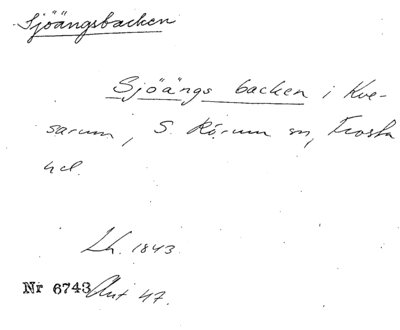 Sjöängsbacken
Sjöängs backen i Kve-
sarum, S. Rörum sn, Frosta
hd.
Lh. 1843.
Nr 6743 Ant 47.